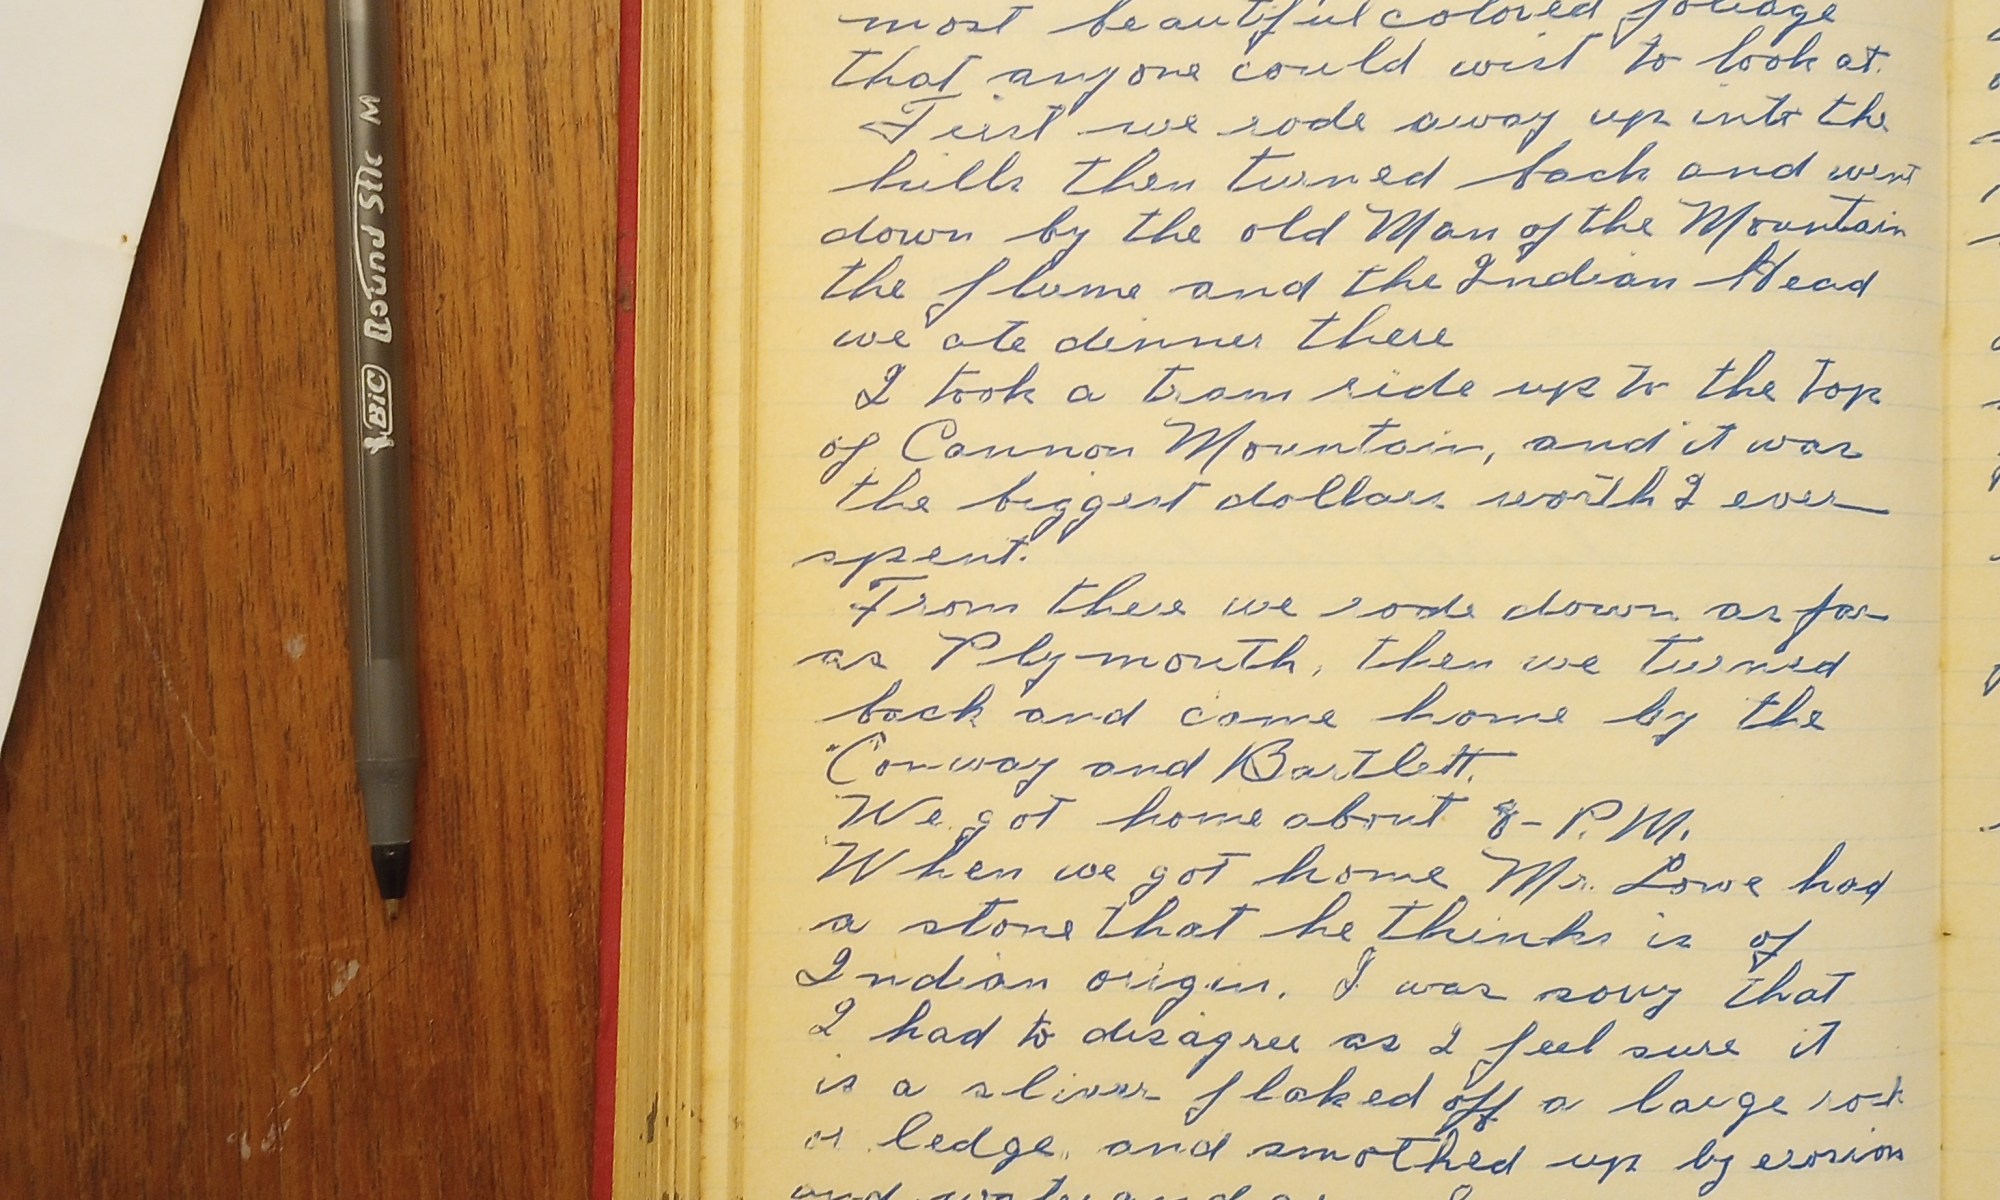 BIC Round Stic M
most beautiful colored foliage
that anyone could wist to look at.
First we rode away up into the
hills then turned back and went
down by the old Man of the Mountain
the flume and the Indian Head
we ate dinner there
I took a tram ride up to the top
of Cannon Mountain, and it was
the biggest dollars worth I ever
spent.
From there we rode down as far
as Plymouth, then we turned
back and came home by the
Conway and Bartlett.
We got home about 8- P.M.
When we got home Mr. Lowe had
a stone that he thinks is of
Indian origin. I was sorry that
I had to disagree as I feel sure it
is a sliver flaked off a large rock
or ledge, and smothed up by erosion
and